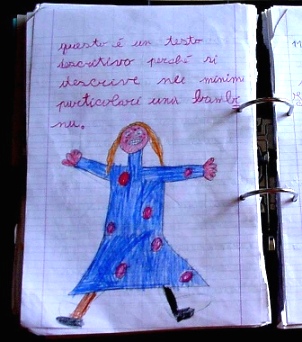 questo è un testo
descrittivo perché si
descrive nei minimi
particolari una bambi
na.